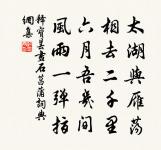 太湖與雁蕩
相去二千里
六月吾幾間
風雨一弹指
釋寶曇畫石菖蒲詞典
網集